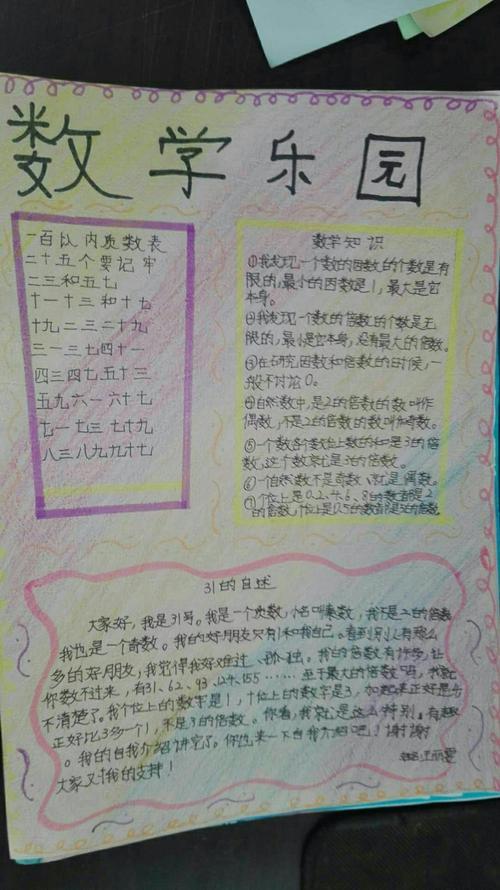 数学乐园
一百以内质数表
二十五个要记牢
二三和五七
十一十三和十七
十九二三二十九
三一三七四十一
四三四七五十三
五九六一六十七
七一七三七十九
八三八九九十七
数学知识
①我发现一个数的因数的个数是有
限的,最小的因数是1,最大是它
本身。
②我发现一个数的倍数的个数是无
限的,最小是它本身,没有最大的倍数。
③在研究因数和倍数的时候,一
般不讨论0。
④自然数中,是2的倍数的数叫作
偶数,不是2的倍数的数叫作奇数。
⑤一个数各个数位上数的和是3的倍
数,这个数就是3的倍数。
⑥一自然数不是奇数,就是偶数。
⑦个位上是0.2.4.6、8的数都是2
的倍数,个位上是0.5的数都是5的倍数
31的自述
大家好,我是31号。我是一个质数,小名叫素数,我不是2的倍数
我也是一个奇数。我的好朋友只有1和我自己。看到别人有那么
多的好朋友,我觉得我好难过、孤独。我的倍数有许多,让
你数不过来,有31、62、93、124、155……至于最大的倍数吗,我就
不清楚了。我个位上的数字是1,十位上的数字是3,如果
正好比3多一个1,不是3的倍数。你看,我就是这么特别,有趣
。我的自我介绍讲完了。你也来一下自我介绍吧!谢谢
大家对我的支持!